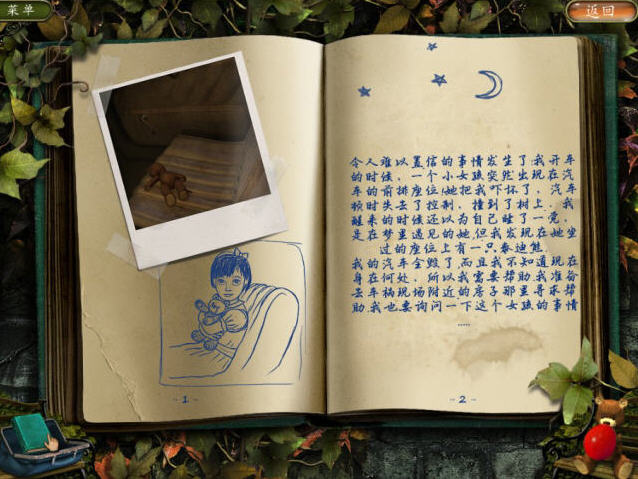 菜单
返回
令人难以置信的事情发生了!我开车
的时候，一个小女孩突然出现在汽
车的前排座位!她把我吓坏了，汽车
顿时失去了控制，撞到了树上。我
醒来的时候还以为自己睡了一觉，
是在梦里遇见的她,但我发现在她坐
过的座位上有一只泰迪熊。
我的汽车全毁了,而且我不知道现在
身在何处，所以我需要帮助,我准备
去车祸现场附近的房子那里寻求帮
助,我也要询问一下这个女孩的事情
.....
- 1 -
- 2 -